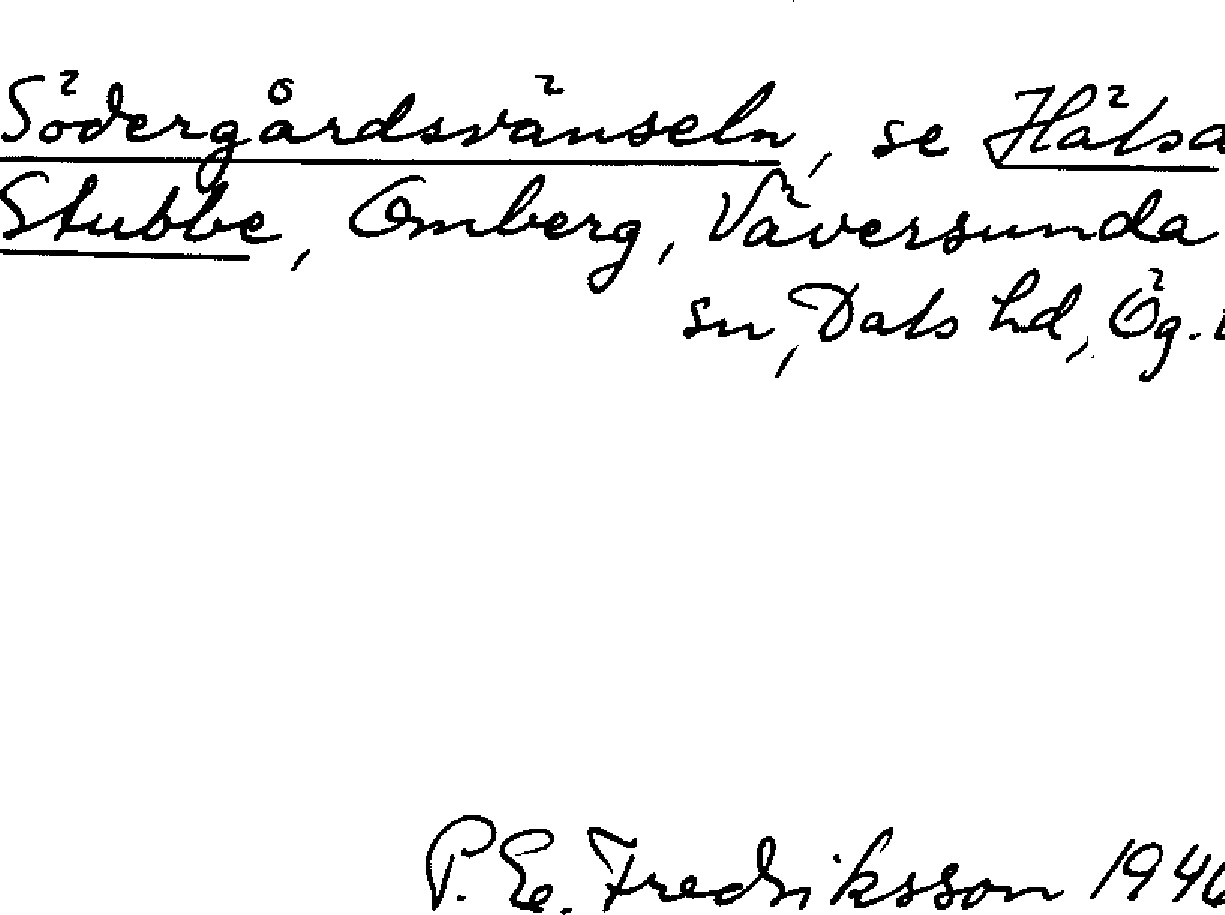 Södergårdsvänseln, se Hälsa
Stubbe, Omberg, Väversunda
sn, Dals hd, Ög.
P. E. Fredriksson